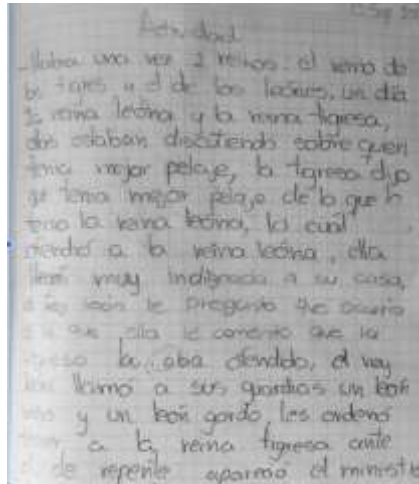 Actividad
Había una vez 2 reinos: el reino de
los tigres y el de los leones, un día
la reina leona y la reina tigresa,
dos estaban discutiendo sobre quien
tenia mejor pelaje, la tigresa dijo
que tenia mejor pelaje de lo que
tenia la reina leona, lo cuál
ofendió a la reina leona, ella
muy indignada a su casa,
el rey león le pregunto que ocurria
que ella le comento que la
tigresa la aba ofendido, el rey
león llamó a sus guardias un león
y un león gordo, les ordenó
traer a la reina tigresa ante
de repente apareció el ministro